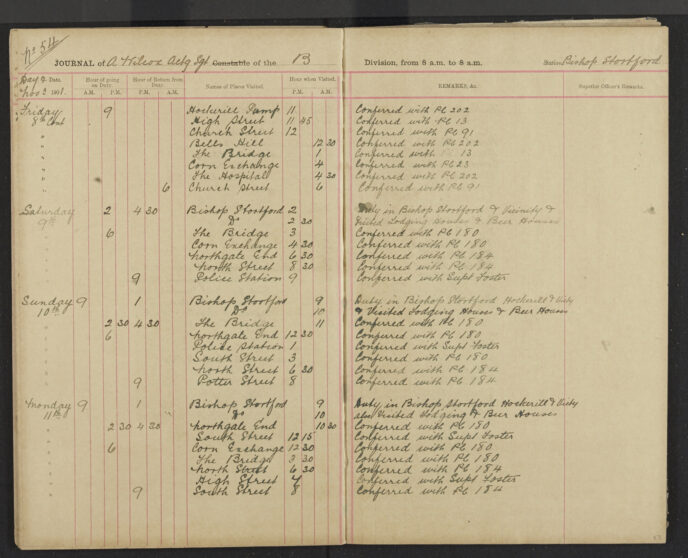 No 54
JOURNAL of A Wilcox Actg Sgt Constable of the B Division, from 8 a.m. to 8 a.m. Station Bishop Stortford
Day & Date. Hour of going on Duty. Hour of Return from Duty. Names of Places Visited. Hour when Visited. REMARKS, &c. Superior Officer's Remarks.
1901. A.M. P.M. A.M. P.M. P.M. A.M.
Friday 9 Hockerill Lamp 11 Conferred with PC 202
8th High Street 11 45 Conferred with PC 13
" Church Street 12 Conferred with PC 91
" Bells Hill 12 30 Conferred with PC 202
" The Bridge 1 Conferred with 13
" Corn Exchange 4 Conferred with PC 23
" The Hospital 4 30 Conferred with PC 202
" 6 Church Street 6 Conferred with PC 91
Saturday 2 4 30 Bishop Stortford 2 Duty in Bishop Stortford & Vicinity &
9th Do 2 30 Visited Lodging Houses & Beer Houses
" 6 The Bridge 3 Conferred with PC 180
" Corn Exchange 4 30 Conferred with PC 180
" Northgate End 6 30 Conferred with PC 184
" North Street 8 30 Conferred with PC 184
" 9 Police Station 9 Conferred with Supt Foster
Sunday 9 1 Bishop Stortford 9 Duty in Bishop Stortford Hockerill &
10th Do 10 & Visited Lodging Houses & Beer Houses
" 2 30 4 30 The Bridge 11 Conferred with PC 180
" 6 Northgate End 12 30 Conferred with PC 180
" Police Station 1 Conferred with Supt Foster
" South Street 3 Conferred with PC 180
" North Street 6 30 Conferred with PC 184
" 9 Potter Street 8 Conferred with PC 184
Monday 9 1 Bishop Stortford 9 Duty in Bishop Stortford Hockerill &
11th Do 10 also Visited Lodging & Beer Houses
" 2 30 4 30 Northgate End 10 30 Conferred with PC 180
" South Street 12 15 Conferred with Supt Foster
" 6 Corn Exchange 12 30 Conferred with PC 180
" The Bridge 3 30 Conferred with PC 180
" North Street 6 30 Conferred with PC 184
" High Street 7 Conferred with Supt Foster
" 9 South Street 8 Conferred with PC 184